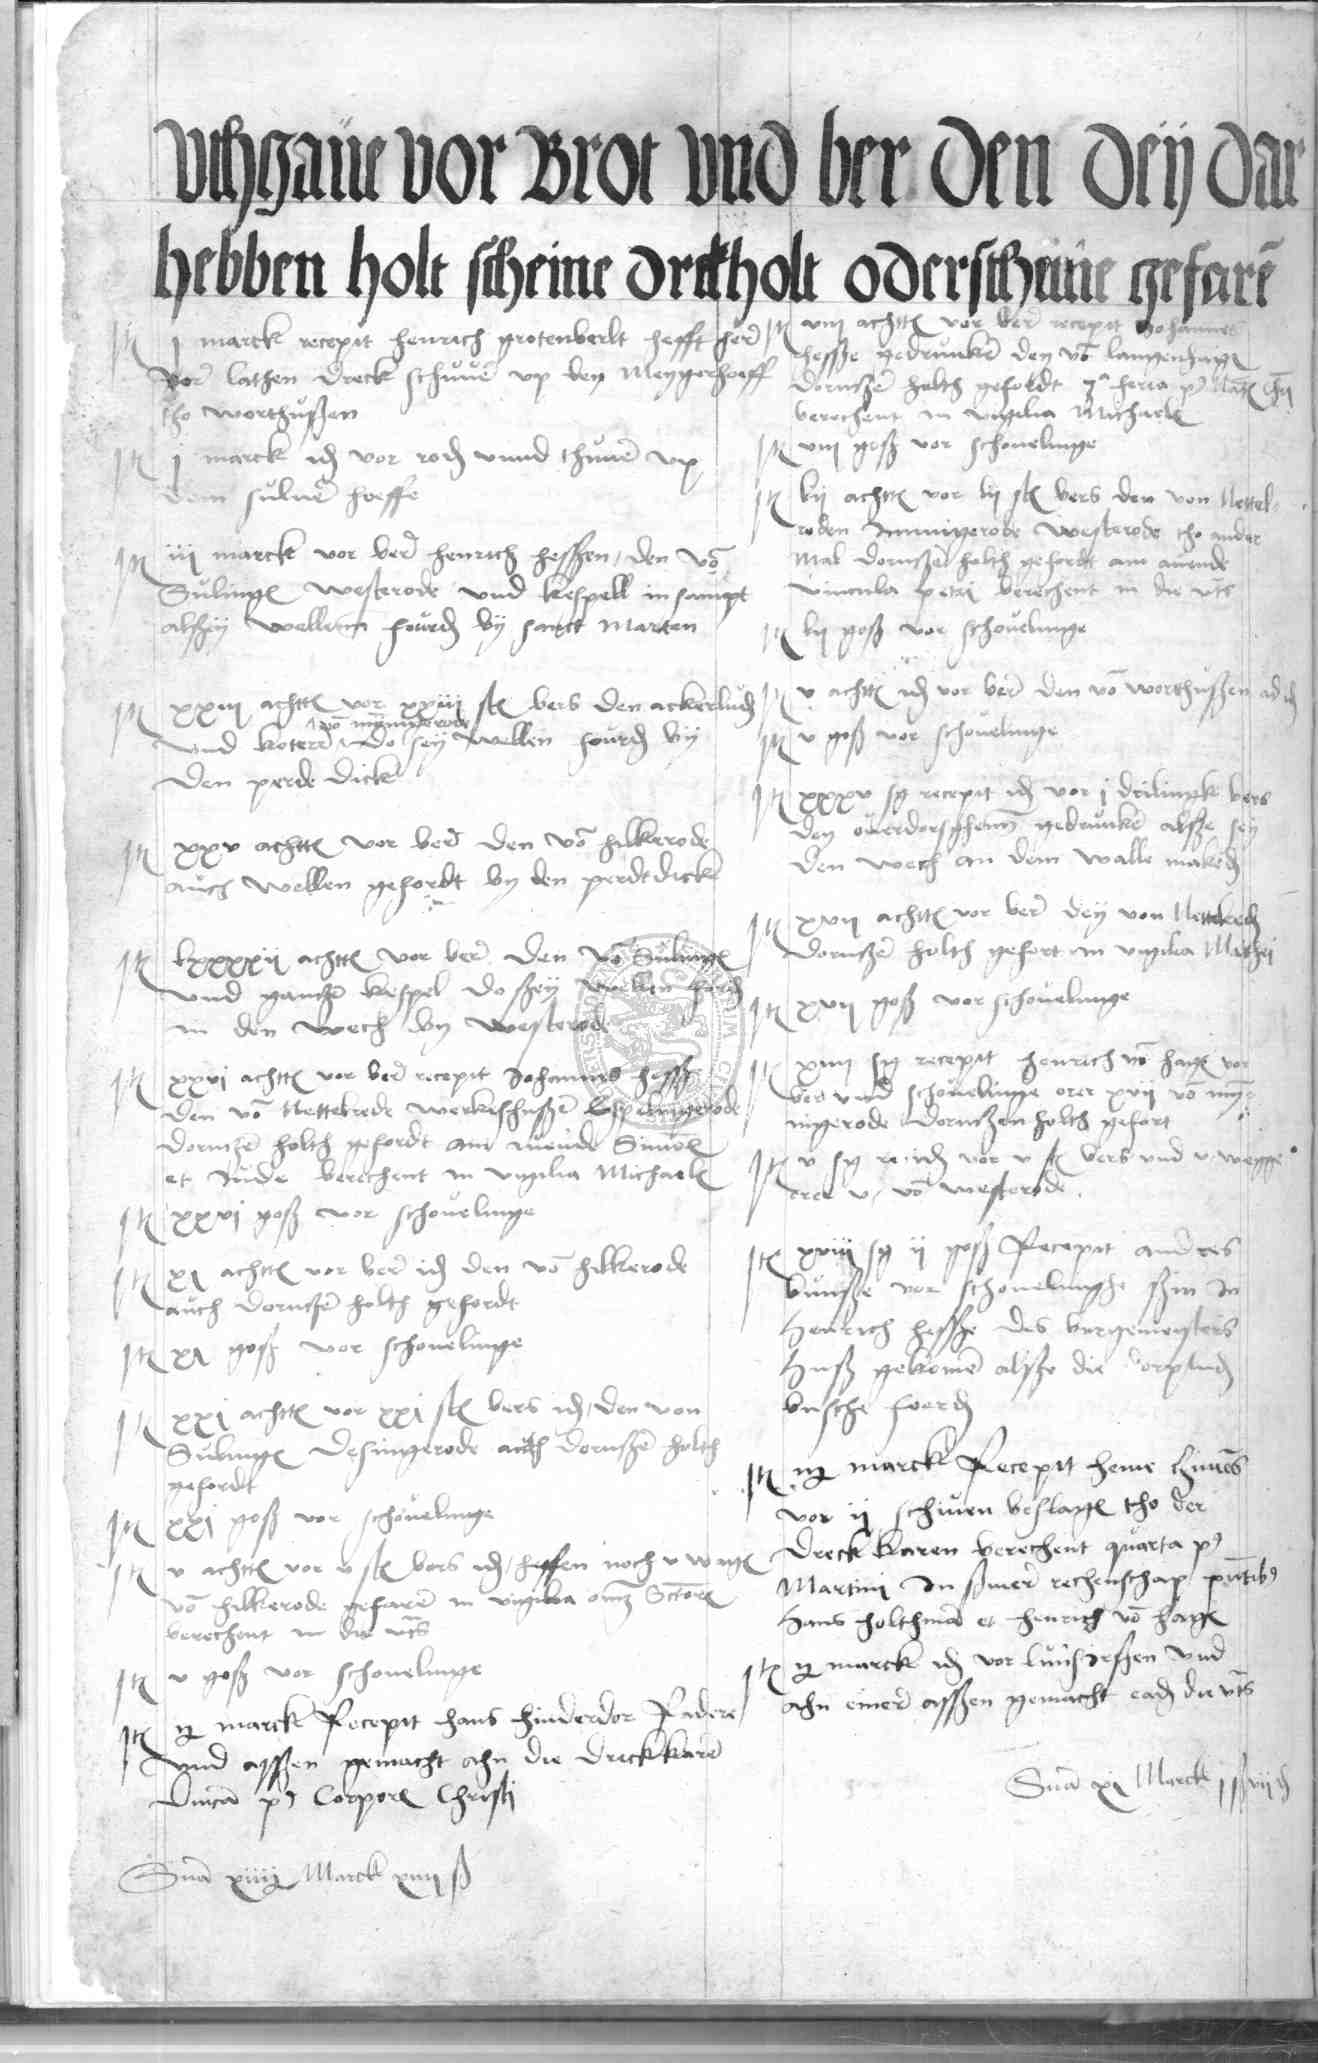 Uthgaue vor Brot vnd ber den deij dar
hebben holt scheine dreckholt oder scheine gefarē
It j marck recepit henrich grotenverlt hefft herd
vor lathen dreck schuuē vp den Meygerhoeff
tho worthußen
It j marck id vor rod vnnd thunē vp
dem suluē hoeffe
It iij marck vor ber henrich heßen den vō
Sulinge Westerode vnd kespell in sampt
alßy wellenn fourd by sanct Marten
It xxiij achtt vor xxiij st bers den ackerlud
vō minnigerode
vnd koterē do sey wellen fourd by
den perde dick
It xxv achtt vor ber den vō hilkerode
auch wellen gefordt by den perdtdick
It lxxxxij achtt vor ber den vō Sulinge
vnd gantzē kespel do ßey wellen ford
in den wech by westerode
It xxvj achtt vor ber recepit Johannes heßße
den vō Nettelrede werkeshußē Espelingerode
dornßē holth gefordt am auende Simōs
et Jude berechent in vigilia Michaelis
It xxvj goß vor schouelinge
It xj achtt vor ber id den vō hilkerode
auch dornßē holth gefordt
It xj goß vor schouelinge
It xxj achtt vor xxj st bers id den von
Sulinge Desingerode auch dornßē holth
gefordt
It xxj goß vor schouelinge
It v achtt vor v st bers id heffen noch v wage
vō hilkerode gefarē in vigilia oīm Sctōrū
berechent in die vts
It v goß vor schouelinge
It marck Recepit hans hinderdor Radere
vnd aßßen gemacht ahn die dreckkarē
Dnīca p9 Corporis Christi
Sum̄a Marck xiiij ß
It viij achtt vor ber recepit Johannes
heßße gedrunckē den vō langenhage
dornßē holth gefordt feria p9
berechent in vigilia Michaelis
It viij goß vor schouelinge
It lij achtt vor lij st bers den von Nettel-
roden Immigerode Westerode tho ander
Mal dornßē holth gefordt am auende
vincula petri berechent in die vts
It lij goß vor schouelinge
It v achtt id vor ber den vō worthußen
It v goß vor schouelinge
It xxxv ßg recepit id vor j drilingk bers
dey gedrunckē alße sey
den wech an dem walle maked
It xvij achtt vor ber dey von Nettelred
dornßē holth gefort in vigilia Mathei
It xvij goß vor schouelinge
It xiiij ßg recepit henrich vō hage vor
ber vnd schouelinge orer xvij vō myn-
nigerode dornßen holth gefort
It v ßg re id vor v st bers vnd v wegge
orer v vō westerode
It xviij ßg ij goß Recepit andres
bunße vor schouelinghe ßin in
Henrich heßße des burgemeisters
Huß gekomē alße die dorplud
busche foerd
It marck Recepit heine
vor ij schiuen beslage tho der
dreck karen berechent quarta p9
Martini in ßiner rechenschap
hans holthmā et henrich vō hage
It marck id vor vnd
ahn einer aßßen gemacht ead die vts
Sum̄a xj Marck j ß vij d